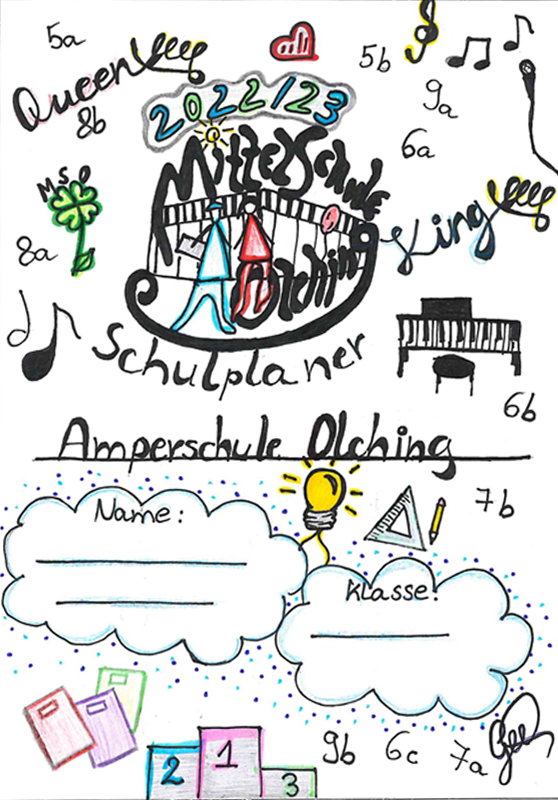 5a
Queen
8b
5b
9a
6a
2022/23
MSO
8a
Mittelschule
Olching
King
Schulplaner
6b
Amperschule Olching
7b
Name:
Klasse:
2
1
3
9b
6c
7a